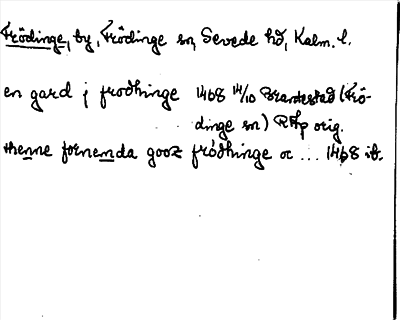 Frödinge, by, Frödinge sn, Sevede hd, Kalm. l.
en gard j frodhinge 1468 14/10 Brantestad (Frö-
dinge sn) RAp orig.
thenne fornemda godz frødhinge oc ... 1468 ib.